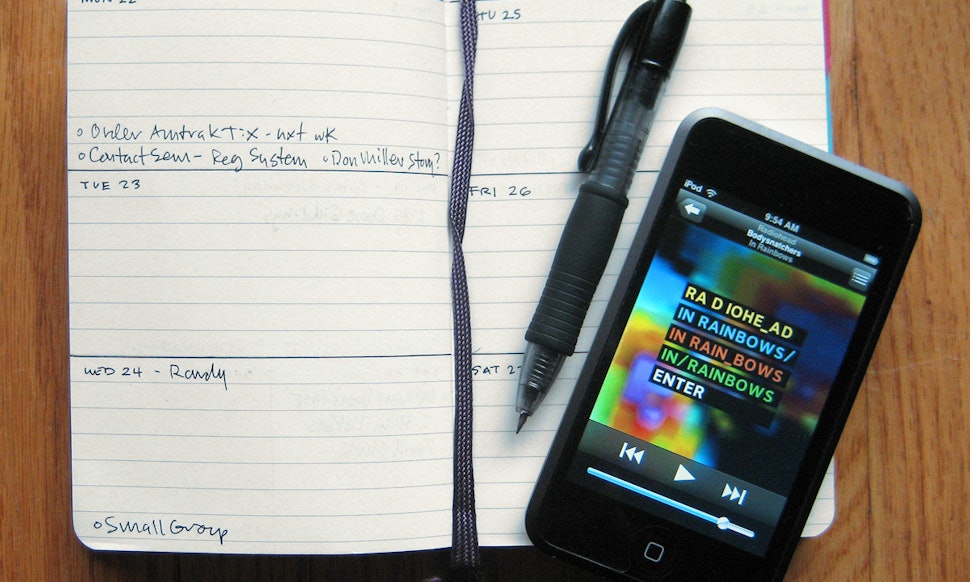 MON 22
o Order Amtrak Tix - nxt wk
o Contact Sem - Reg System o Don Miller Story?
TUE 23
WED 24 - Randy
o Small Group
THU 25
FRI 26
SAT 27
iPod
9:54 AM
Radiohead
Bodysnatchers
In Rainbows
RA D IOHE_AD
IN RAINBOWS/
IN RAIN_BOWS
IN/RAINBOWS
ENTER